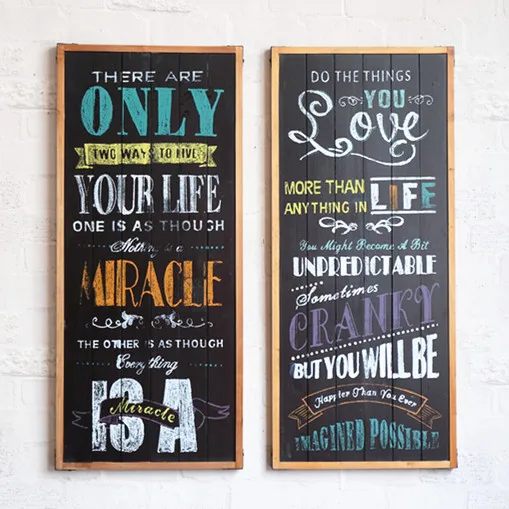 THERE ARE
ONLY
TWO WAYS TO LIVE
YOUR LIFE
ONE IS AS THOUGH
Nothing is a
MIRACLE
THE OTHER IS AS THOUGH
Everything
IS A
Miracle
DO THE THINGS
YOU
Love
MORE THAN
ANYTHING IN
LIFE
You Might Become A Bit
UNPREDICTABLE
Sometimes
CRANKY
BUT YOU WILL BE
Happier Than You Ever
IMAGINED POSSIBLE